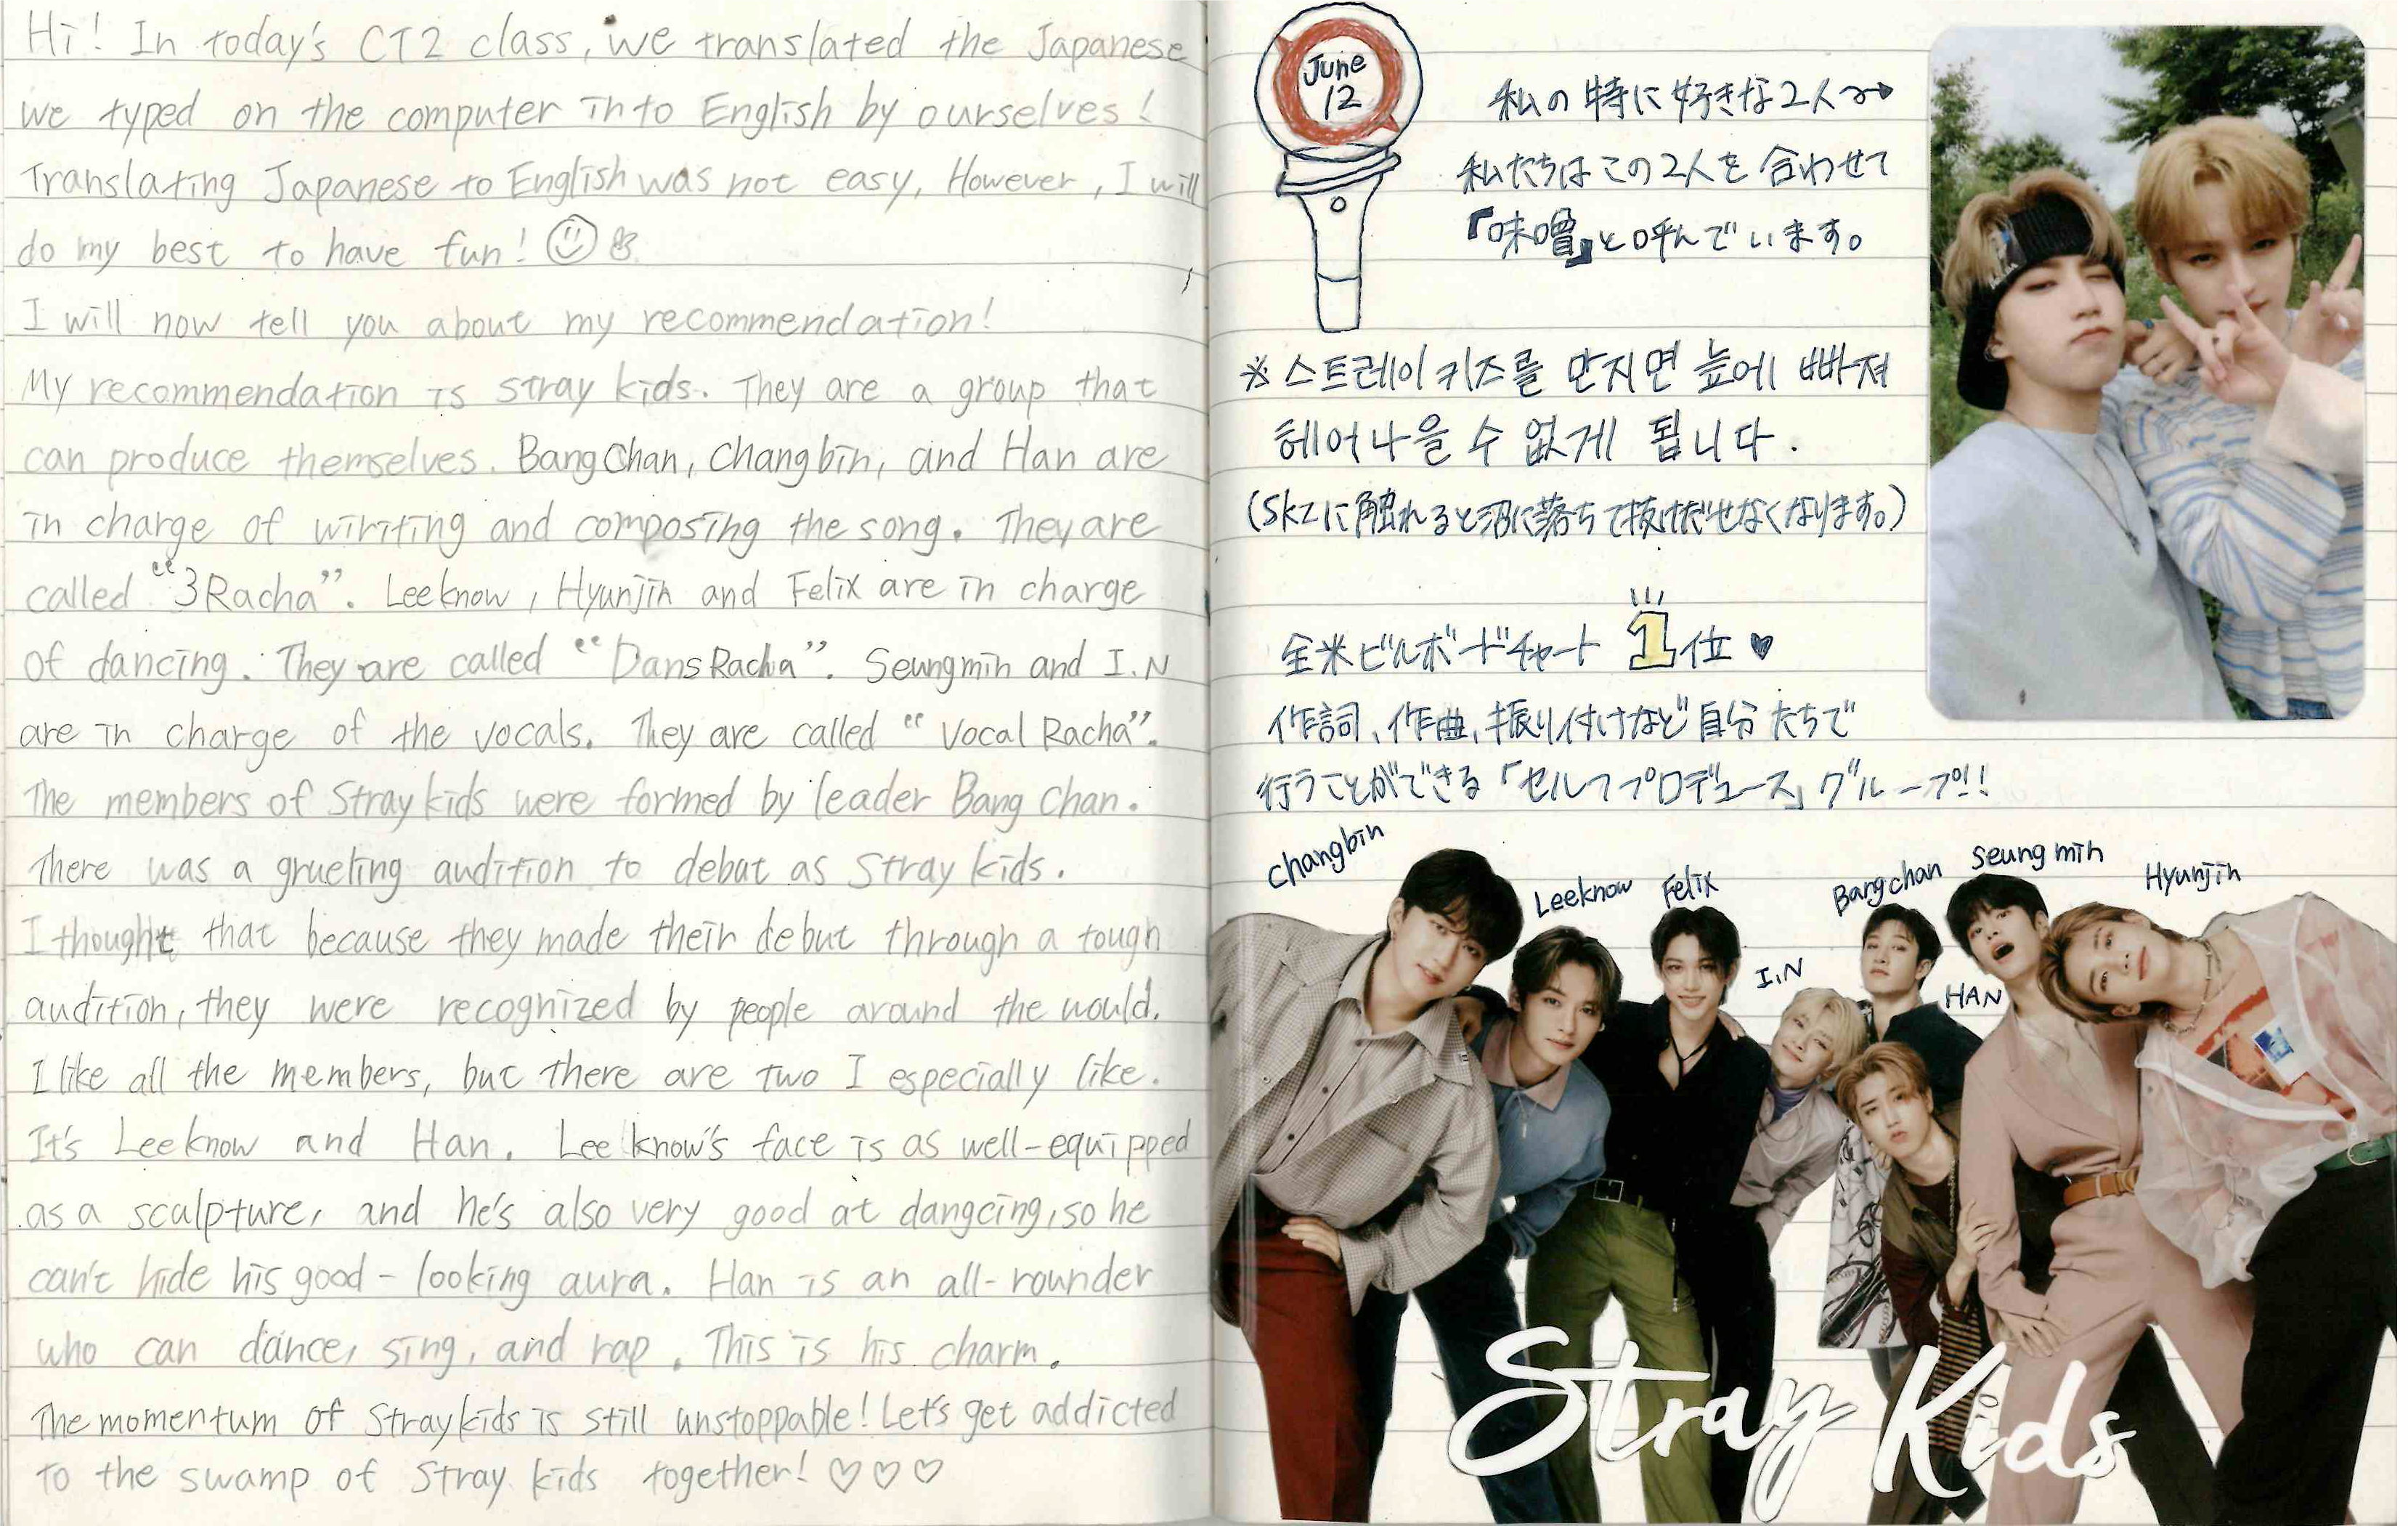 Hi! In today's CT2 class, we translated the Japanese
we typed on the computer into English by ourselves!
Translating Japanese to English was not easy, However, I will
do my best to have fun!
I will now tell you about my recommendation!
My recommendation is stray kids. They are a group that
can produce themselves. Bang Chan, Changbin, and Han are
in charge of wiriting and composing the song. They are
called "3Racha". Leeknow, Hyunjin and Felix are in charge
of dancing. They are called "DansRacha". Seungmin and I.N
are in charge of the vocals. They are called "Vocal Racha".
The members of Stray kids were formed by leader Bang Chan.
There was a grueling audition to debut as Stray kids.
I thought that because they made their debut through a tough
audition, they were recognized by people around the would.
I like all the members, but there are two I especially like.
It's Leeknow and Han. Lee know's face is as well-equipped
as a sculpture, and he's also very good at dangcing, so he
can't hide his good-looking aura. Han is an all-rounder
who can dance, sing, and rap. This is his charm.
The momentum of Stray kids is still unstoppable! Let's get addicted
to the swamp of Stray kids together! ♡♡♡
June
12
私の特に好きな2人→
私たちはこの2人を合わせて
『味噌』と呼んでいます。
※스트레이키즈를 만지면 늪에 빠져
헤어나올 수 없게 됩니다.
(SKZに触れると沼に落ちて抜けだせなくなります。)
全米ビルボードチャート 1位♥
作詞、作曲、振り付けなど自分たちで
行うことができる「セルフプロデュース」グループ!!
Changbin
Leeknow
Felix
I.N
Bangchan
HAN
Seungmin
Hyunjin
Stray Kids